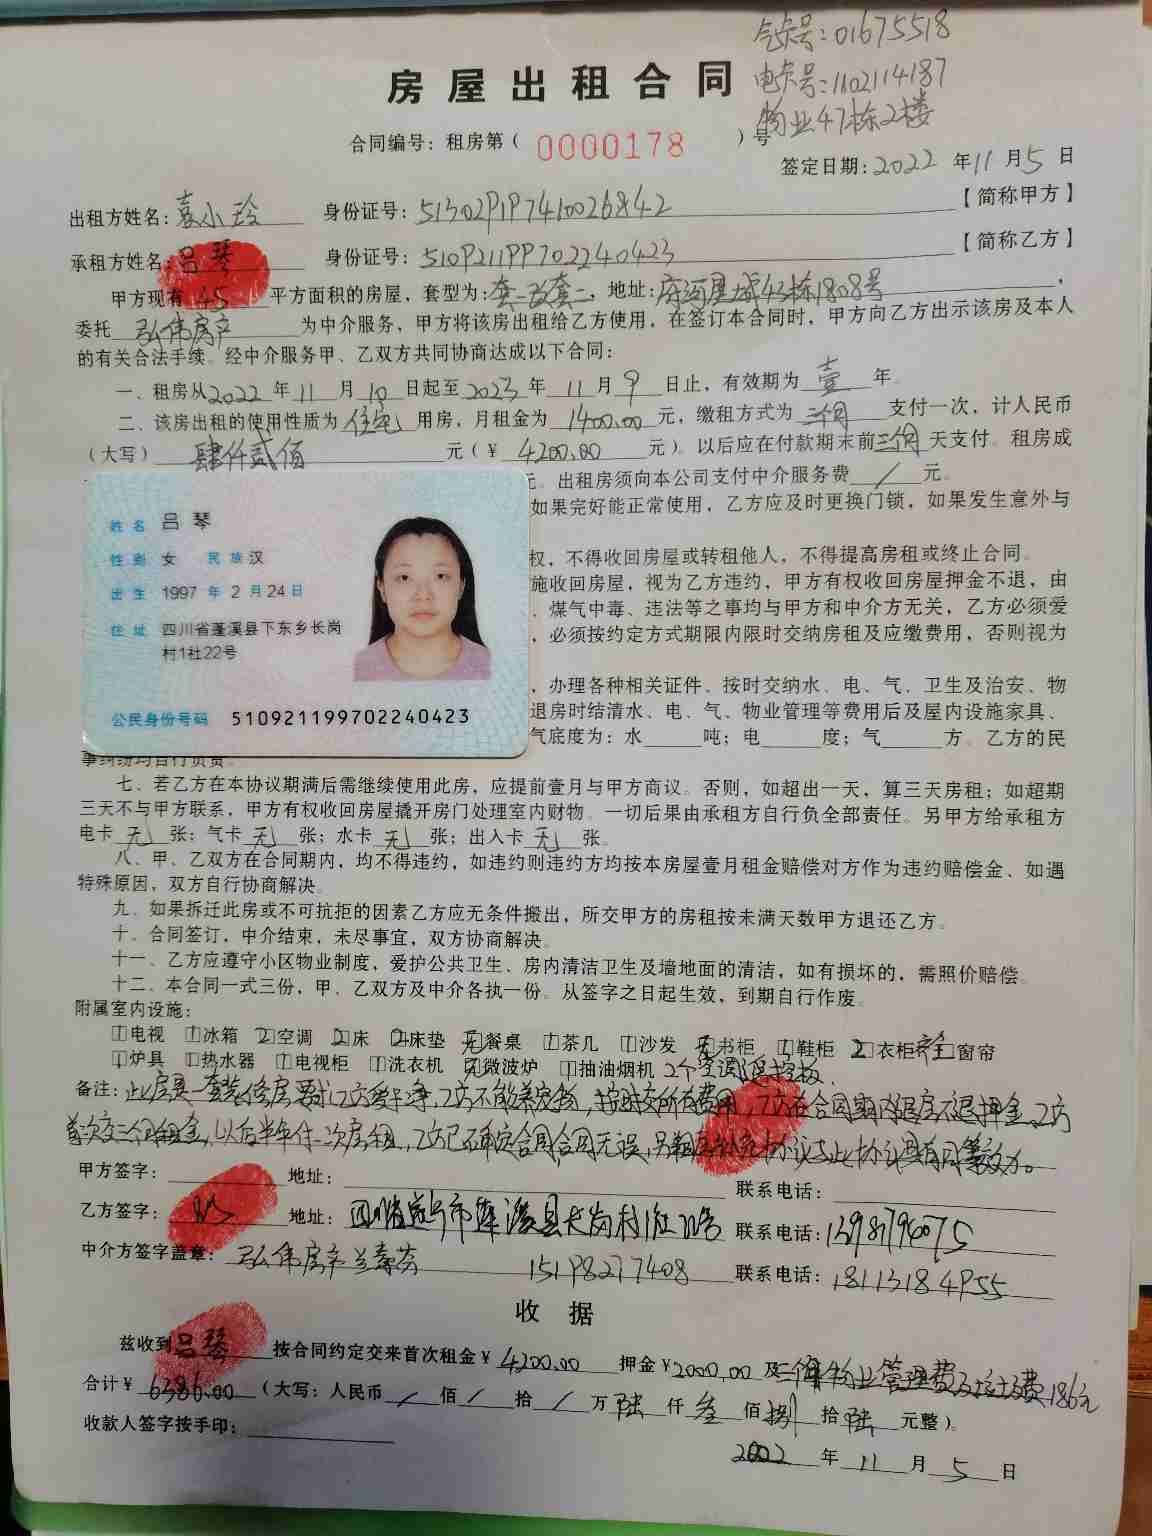 气卡号:01675518
房屋出租合同
电卡号:1102114187
物业47栋2楼
合同编号:租房第( 0000178 )号
签定日期:2022 年 11 月 5 日
出租方姓名: 袁小玲 身份证号: 【简称甲方】
承租方姓名: 吕琴 身份证号: 510921199702240423 【简称乙方】
甲方现有 45 平方面积的房屋,套型为:套一改套二,地址:府河星城43栋1808号,
委托 弘伟房产 为中介服务,甲方将该房出租给乙方使用,在签订本合同时,甲方向乙方出示该房及本人
的有关合法手续。经中介服务甲、乙双方共同协商达成以下合同:
一、租房从2022 年 11 月 10 日起至2023 年 11 月 9 日止,有效期为 壹 年。
二、该房出租的使用性质为 住宅 用房,月租金为 1400.00 元,缴租方式为 三个月 支付一次,计人民币
(大写) 肆仟贰佰 元(¥ 4200.00 元)。以后应在付款期末前 天支付。租房成
元。出租房须向本公司支付中介服务费 / 元。
如果完好能正常使用,乙方应及时更换门锁,如果发生意外与
权,不得收回房屋或转租他人,不得提高房租或终止合同。
施收回房屋,视为乙方违约,甲方有权收回房屋押金不退,由
、煤气中毒、违法等之事均与甲方和中介方无关,乙方必须爱
,必须按约定方式期限内限时交纳房租及应缴费用,否则视为
,办理各种相关证件、按时交纳水、电、气、卫生及治安、物
退房时结清水、电、气、物业管理等费用后及屋内设施家具、
气底度为:水 吨;电 度;气 方。乙方的民
事纠纷均自行负责。
姓名 吕琴
性别 女 民族 汉
出生 1997 年 2 月 24 日
住址 四川省蓬溪县下东乡长岗
村1社22号
公民身份号码 510921199702240423
七、若乙方在本协议期满后需继续使用此房,应提前壹月与甲方商议。否则,如超出一天,算三天房租;如超期
三天不与甲方联系,甲方有权收回房屋撬开房门处理室内财物。一切后果由承租方自行负全部责任。另甲方给承租方
电卡 无 张;气卡 无 张;水卡 无 张;出入卡 无 张。
八、甲、乙双方在合同期内,均不得违约,如违约则违约方均按本房屋壹月租金赔偿对方作为违约赔偿金、如遇
特殊原因,双方自行协商解决。
九、如果拆迁此房或不可抗拒的因素乙方应无条件搬出,所交甲方的房租按未满天数甲方退还乙方。
十、合同签订,中介结束,未尽事宜,双方协商解决。
十一、乙方应遵守小区物业制度,爱护公共卫生、房内清洁卫生及墙地面的清洁,如有损坏的,需照价赔偿。
十二、本合同一式三份,甲、乙双方及中介各执一份。从签字之日起生效,到期自行作废。
附属室内设施:
1电视 1冰箱 2空调 2床 2床垫 无餐桌 1茶几 1沙发 无书柜 1鞋柜 2衣柜 窗帘
1炉具 1热水器 1电视柜 1洗衣机 无微波炉 1抽油烟机 2个空调遥控板。
备注:此房是一套装修房要求乙方爱干净,乙方不能养宠物,按时交所有费用,乙方在合同期内退房不退押金,乙方
首次交三个月租金,以后半年付一次房租,乙方已 合同无误,另 补充协议与此协议具有同等效力。
甲方签字: 地址: 联系电话:
乙方签字: 地址: 四川省遂宁市 县长岗村1社22号 联系电话:
中介方签字盖章: 弘伟房产兰 15198277408 联系电话:18113184955
收 据
兹收到 吕琴 按合同约定交来首次租金¥ 4200.00 押金¥2000.00 及三个月物业管理费及垃圾费186元
合计¥ 6386.00 (大写:人民币 / 佰 / 拾 / 万 陆 仟 叁 佰 捌 拾 陆 元整)。
收款人签字按手印:
2022 年 11 月 5 日